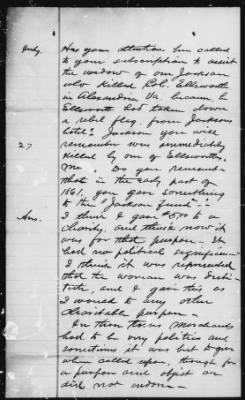 Judg. Has your attention been called
to your subscription to assist
the widow of one Jackson
who killed Col. Ellsworth
in Alexandria Va. because he
Ellsworth had taken down
a rebel flag from Jacksons
hotel? Jackson you will
27 remember was immediately
killed by one of Ellsworths
men. Do you remember
that in the early part of
1861, you gave something
to the "Jackson fund"?
Ans. I think I gave $5.00 to a
charity, and think now it
was for that purpose. It
had no political significance
I think it was represented
that the woman was desti-
tute, and I gave this as
I would to any other
charitable purpose.
In them times Merchants
had to be very politic and
sometimes it was best to give
when called upon, though for
a purpose and object one
did not endorse